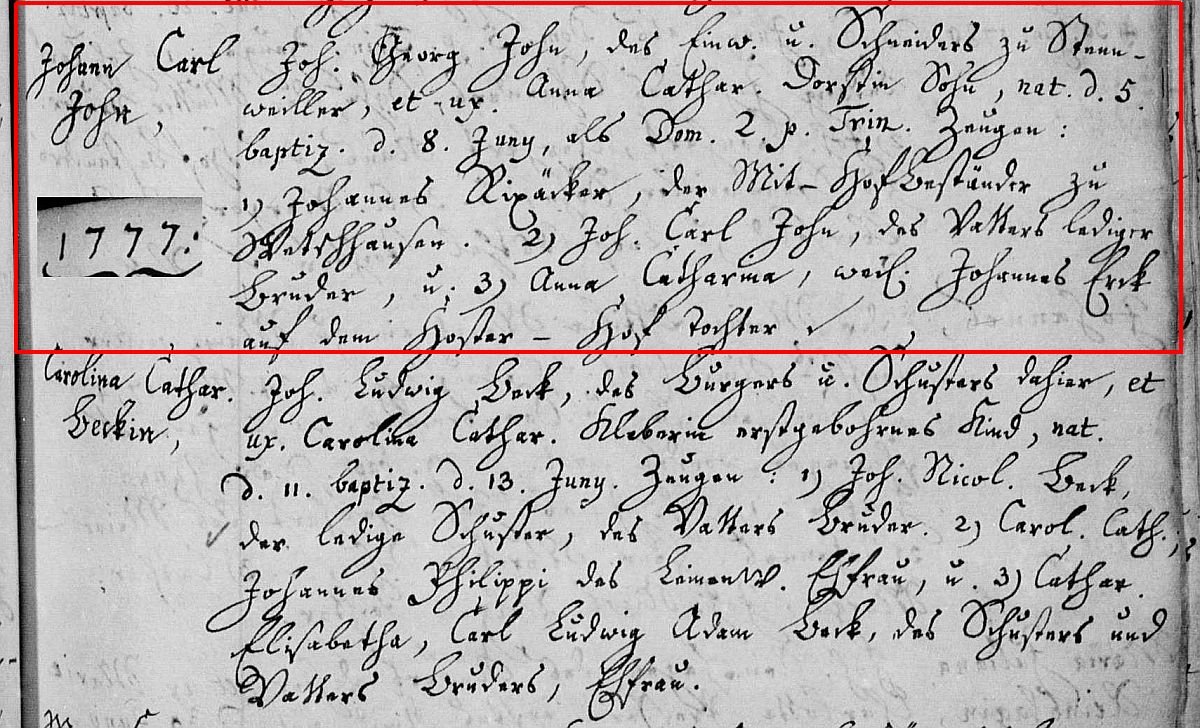 Johann Carl
John,
1777.
Joh. Georg John, des Einw. u. Schneiders zu Stenn-
weiller, et ux. Anna Cathar. Dorstin Sohn, nat. d. 5.
baptiz. d. 8. Juny, als Dom. 2. p. Trin. Zeugen:
1) Johannes Rixäcker, der Mit-Hofbeständer zu
2) Joh. Carl John, des Vatters lediger
Bruder, u. 3) Anna Catharina, weil. Johannes Erck
auf dem Hoster-Hof Tochter
Carolina Cathar.
Beckin,
Joh. Ludwig Beck, des Burgers u. Schusters dahier, et
ux. Carolina Cathar. Kleberin erstgebohrnes Kind, nat.
d. 11. baptiz. d. 13. Juny. Zeugen: 1) Joh. Nicol. Beck,
der ledige Schuster, des Vatters Bruder. 2) Carol. Cath.,
Johannes Philippi des Leinenw. Ehfrau, u. 3) Cathar.
Elisabetha, Carl Ludwig Adam Beck, des Schusters und
Vatters Bruders, Ehfrau.